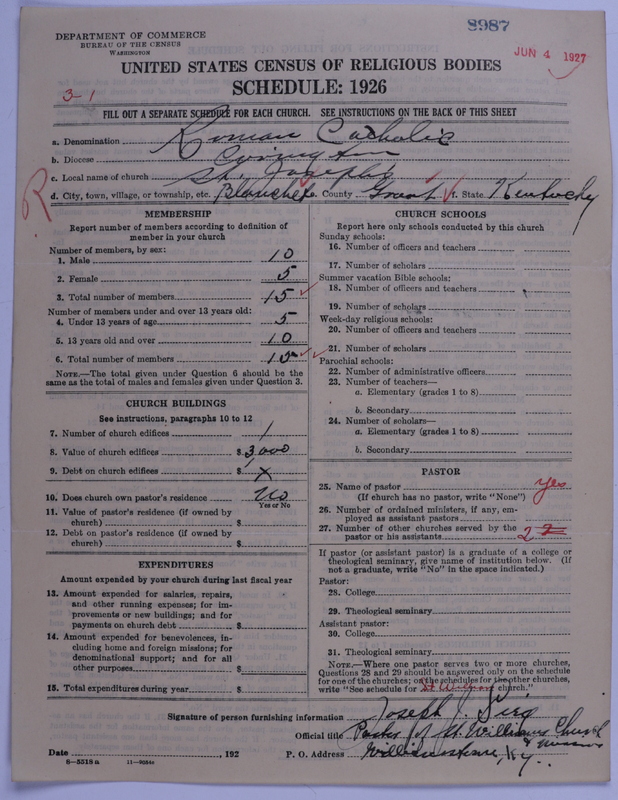 8987
DEPARTMENT OF COMMERCE
BUREAU OF THE CENSUS
WASHINGTON
JUN 4 1927
UNITED STATES CENSUS OF RELIGIOUS BODIES
SCHEDULE: 1926
3-1
FILL OUT A SEPARATE SCHEDULE FOR EACH CHURCH. SEE INSTRUCTIONS ON THE BACK OF THIS SHEET
a. Denomination Roman Catholic
b. Diocese Covington
c. Local name of church St. Joseph's
R
d. City, town, village, or township, etc. Blanchet e. County Grant f. State Kentucky
MEMBERSHIP
Report number of members according to definition of
member in your church
Number of members, by sex:
1. Male 10
2. Female 5
3. Total number of members 15
Number of members under and over 13 years old:
4. Under 13 years of age 5
5. 13 years old and over 10
6. Total number of members 15
NOTE.—The total given under Question 6 should be
same as the total of males and females given under Question 3.
CHURCH BUILDINGS
See instructions, paragraphs 10 to 12
7. Number of church edifices 1
8. Value of church edifices $ 3,000
9. Debt on church edifices $ X
10. Does church own pastor's residence No
Yes or No
11. Value of pastor's residence (if owned by
church) $
12. Debt on pastor's residence (if owned by
church) $
EXPENDITURES
Amount expended by your church during last fiscal year
13. Amount expended for salaries, repairs,
and other running expenses; for im-
provements or new buildings; and for
payments on church debt $
14. Amount expended for benevolences, in-
cluding home and foreign missions; for
denominational support; and for all
other purposes $
15. Total expenditures during year $
CHURCH SCHOOLS
Report here only schools conducted by this church
Sunday schools:
16. Number of officers and teachers
17. Number of scholars
Summer vacation Bible schools:
18. Number of officers and teachers
19. Number of scholars
Week-day religious schools:
20. Number of officers and teachers
21. Number of scholars
Parochial schools:
22. Number of administrative officers
23. Number of teachers—
a. Elementary (grades 1 to 8)
b. Secondary
24. Number of scholars—
a. Elementary (grades 1 to 8)
b. Secondary
PASTOR
25. Name of pastor yes
(If church has no pastor, write "None")
26. Number of ordained ministers, if any, em-
ployed as assistant pastors
27. Number of other churches served by the
pastor or his assistants 2
If pastor (or assistant pastor) is a graduate of a college or
theological seminary, give name of institution below. (If
not a graduate, write "No" in the space indicated.)
Pastor:
28. College
29. Theological seminary
Assistant pastor:
30. College
31. Theological seminary
NOTE.—Where one pastor serves two or more churches,
Questions 28 and 29 should be answered only on the schedule
for one of the churches; on the schedules for the other churches,
write "See schedule for St William church."
Signature of person furnishing information Joseph
Official title Pastor of St. Williams Church
& missions
Date , 192 P. O. Address Williamstown, Ky.
8—5518 a 11—9254